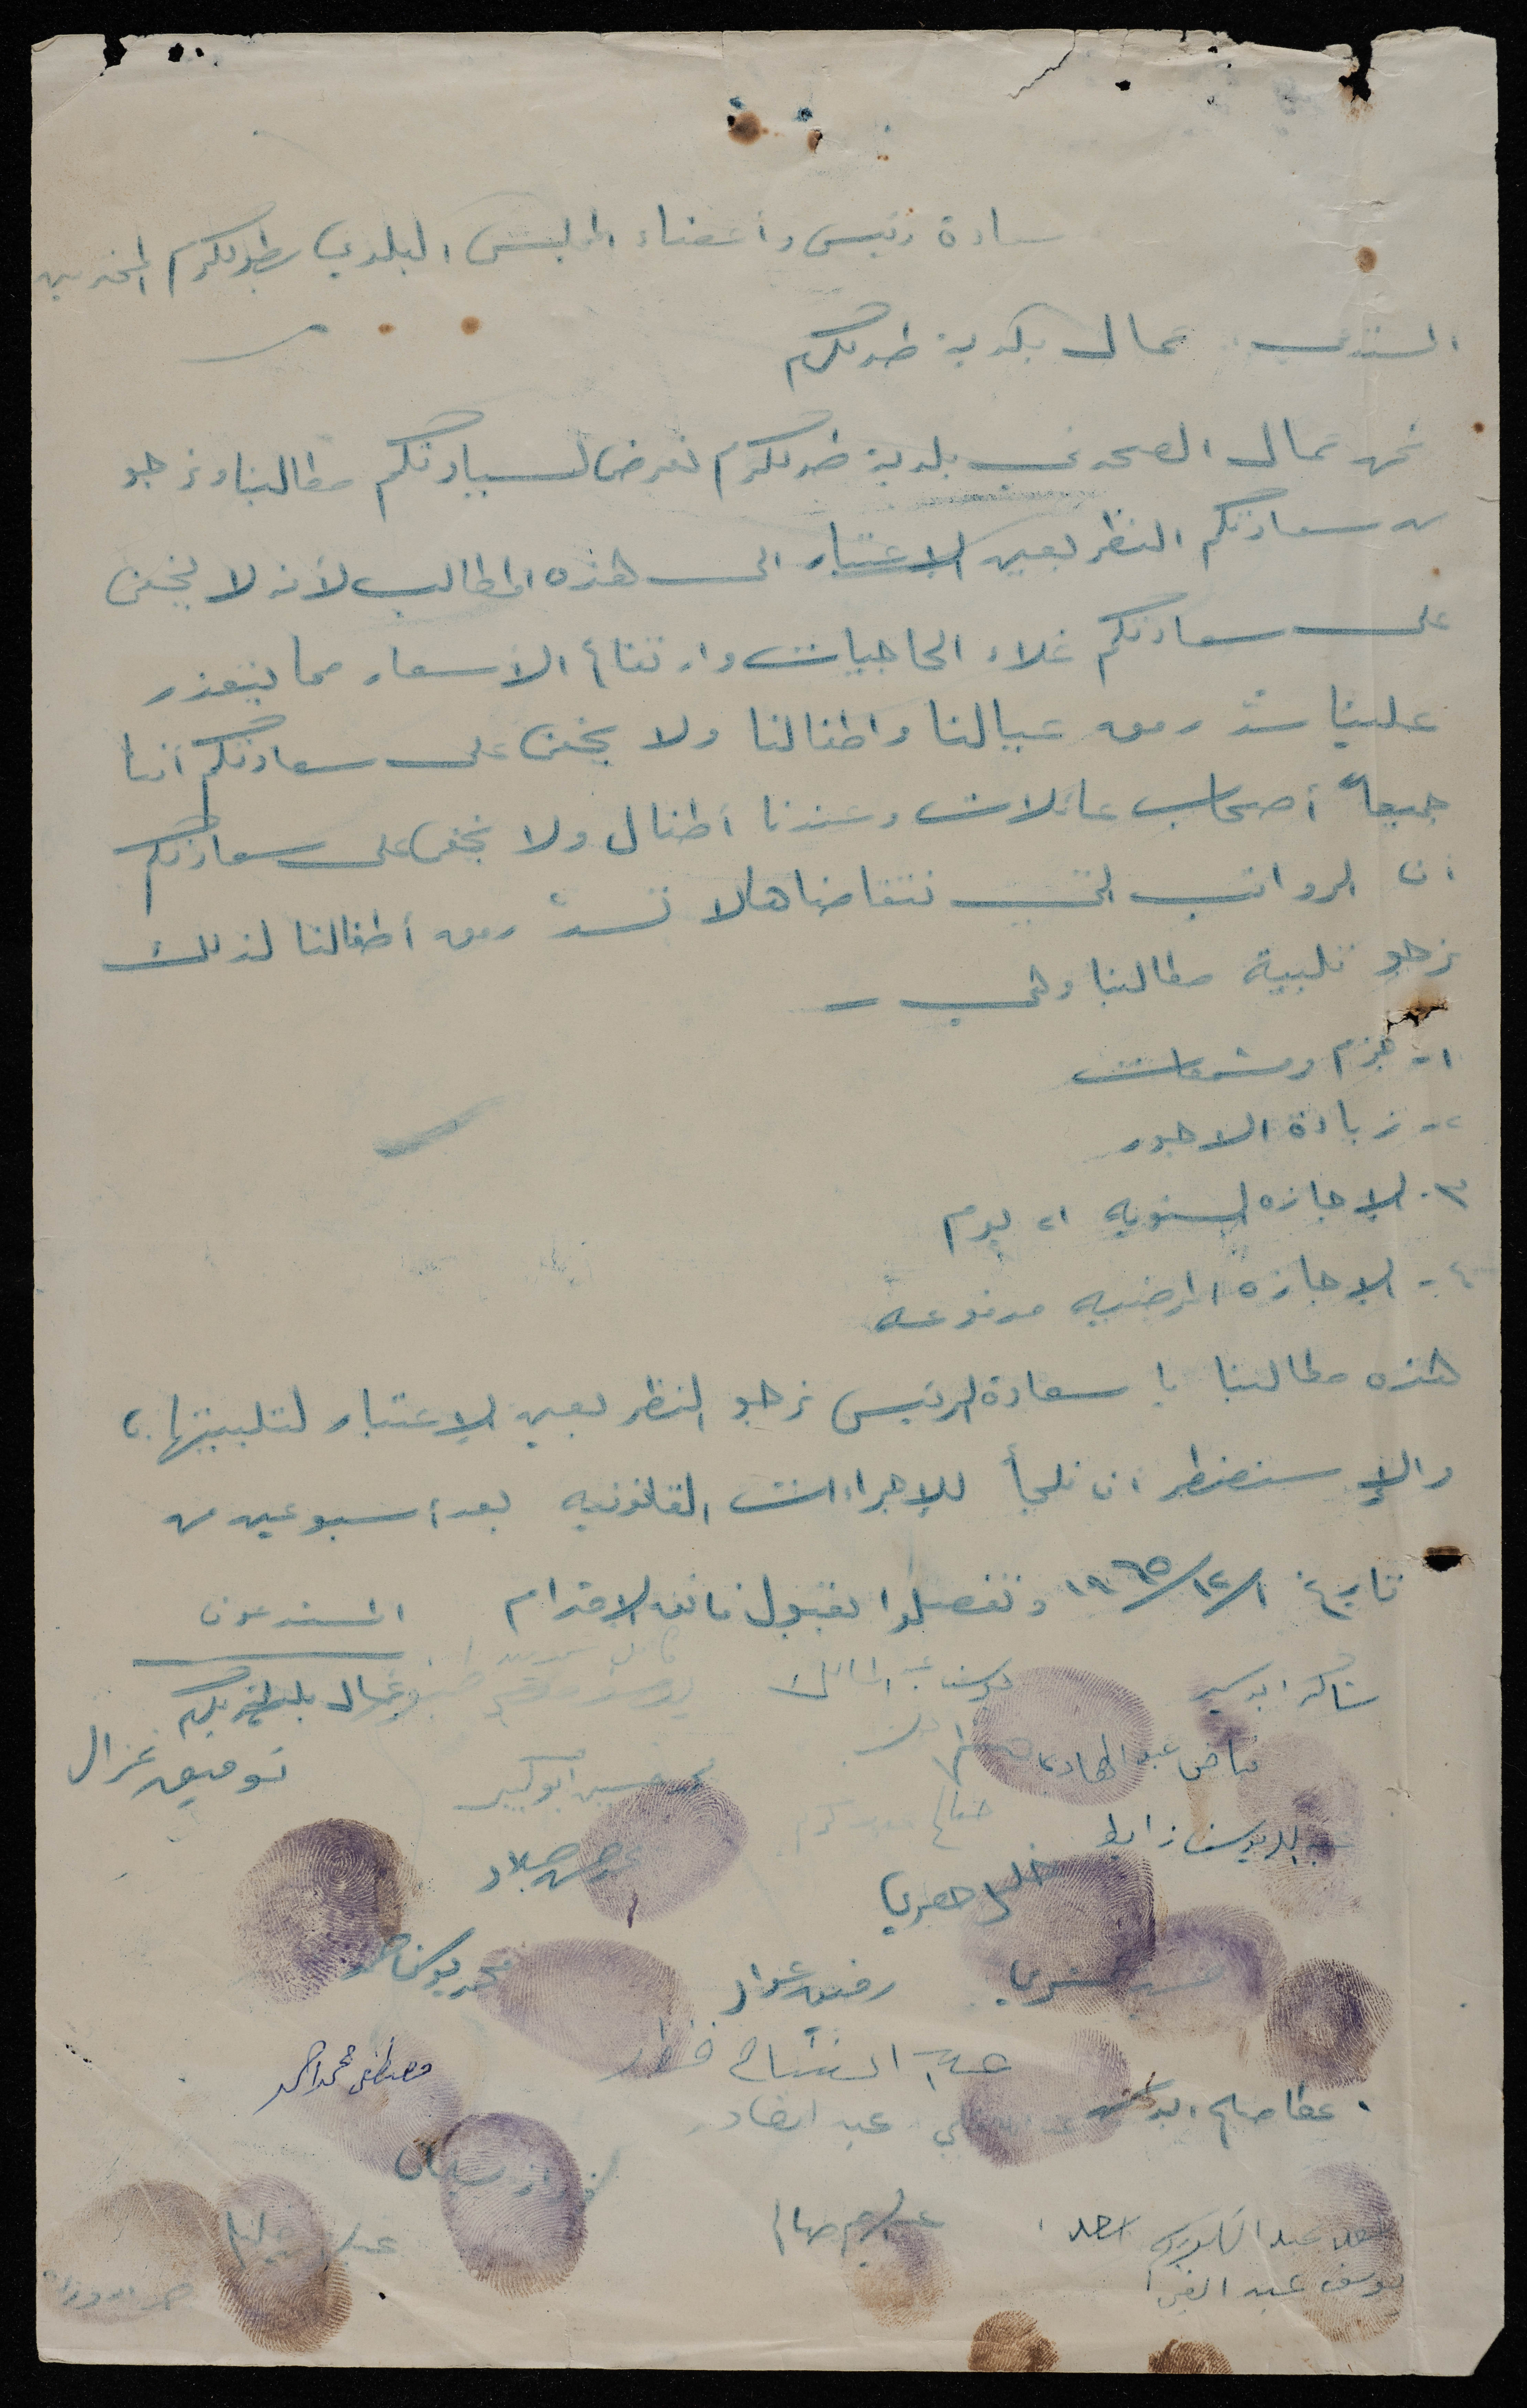 سعادة رئيس وأعضاء المجلس البلدي بطولكرم المحترمين
المستدعي: عمال بلدية طولكرم
نحن عمال الصحه في بلدية طولكرم نعرض لسيادتكم مطالبنا ونرجو
من سعادتكم النظر بعين الإعتبار الى هذه المطالب لأنه لا يخفى
على سعادتكم غلاء الحاجيات وارتفاع الأسعار مما يتعذر
علينا سدّ رمق عيالنا واطفالنا ولا يخفى على سعادتكم أننا
جميعاً أصحاب عائلات وعندنا أطفال ولا يخفى على سعادتكم
أن الرواتب التي نتقاضاها لا تسدّ رمق أطفالنا لذلك
نرجو تلبية مطالبنا وهي -
١- جزم ومشمعات
٢- زيادة الاجور
٣- الإجازه السنويه ٢١ يوم
٤- الإجازه المرضيه مدفوعه
هذه مطالبنا يا سعادة الرئيس نرجو النظر بعين الإعتبار لتلبيتها،
والإ سنضطر ان نلجأ للإجراءات القانونيه بعد أسبوعين من
تاريخ ١/١٢/١٩٦٥ وتفضلوا بقبول فائق الإحترام المستدعون
عمال بلدية طولكرم
شاكر ابو
يوسف عبد المالك
عبد الهادي
حسين ابو كبير
توفيق غزال
يوسف زابط
خليل
محمد يوسف
رفيق عواد
عبد الفتاح
مصطفى محمد احمد
عطا صالح ابو
عبد القادر
فواز سليمان
عبد الكريم احمد
عبد الرحيم صالح
يوسف عبد الغني